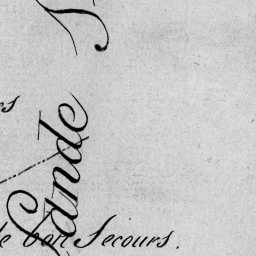 es
Lande
de bon Secours.